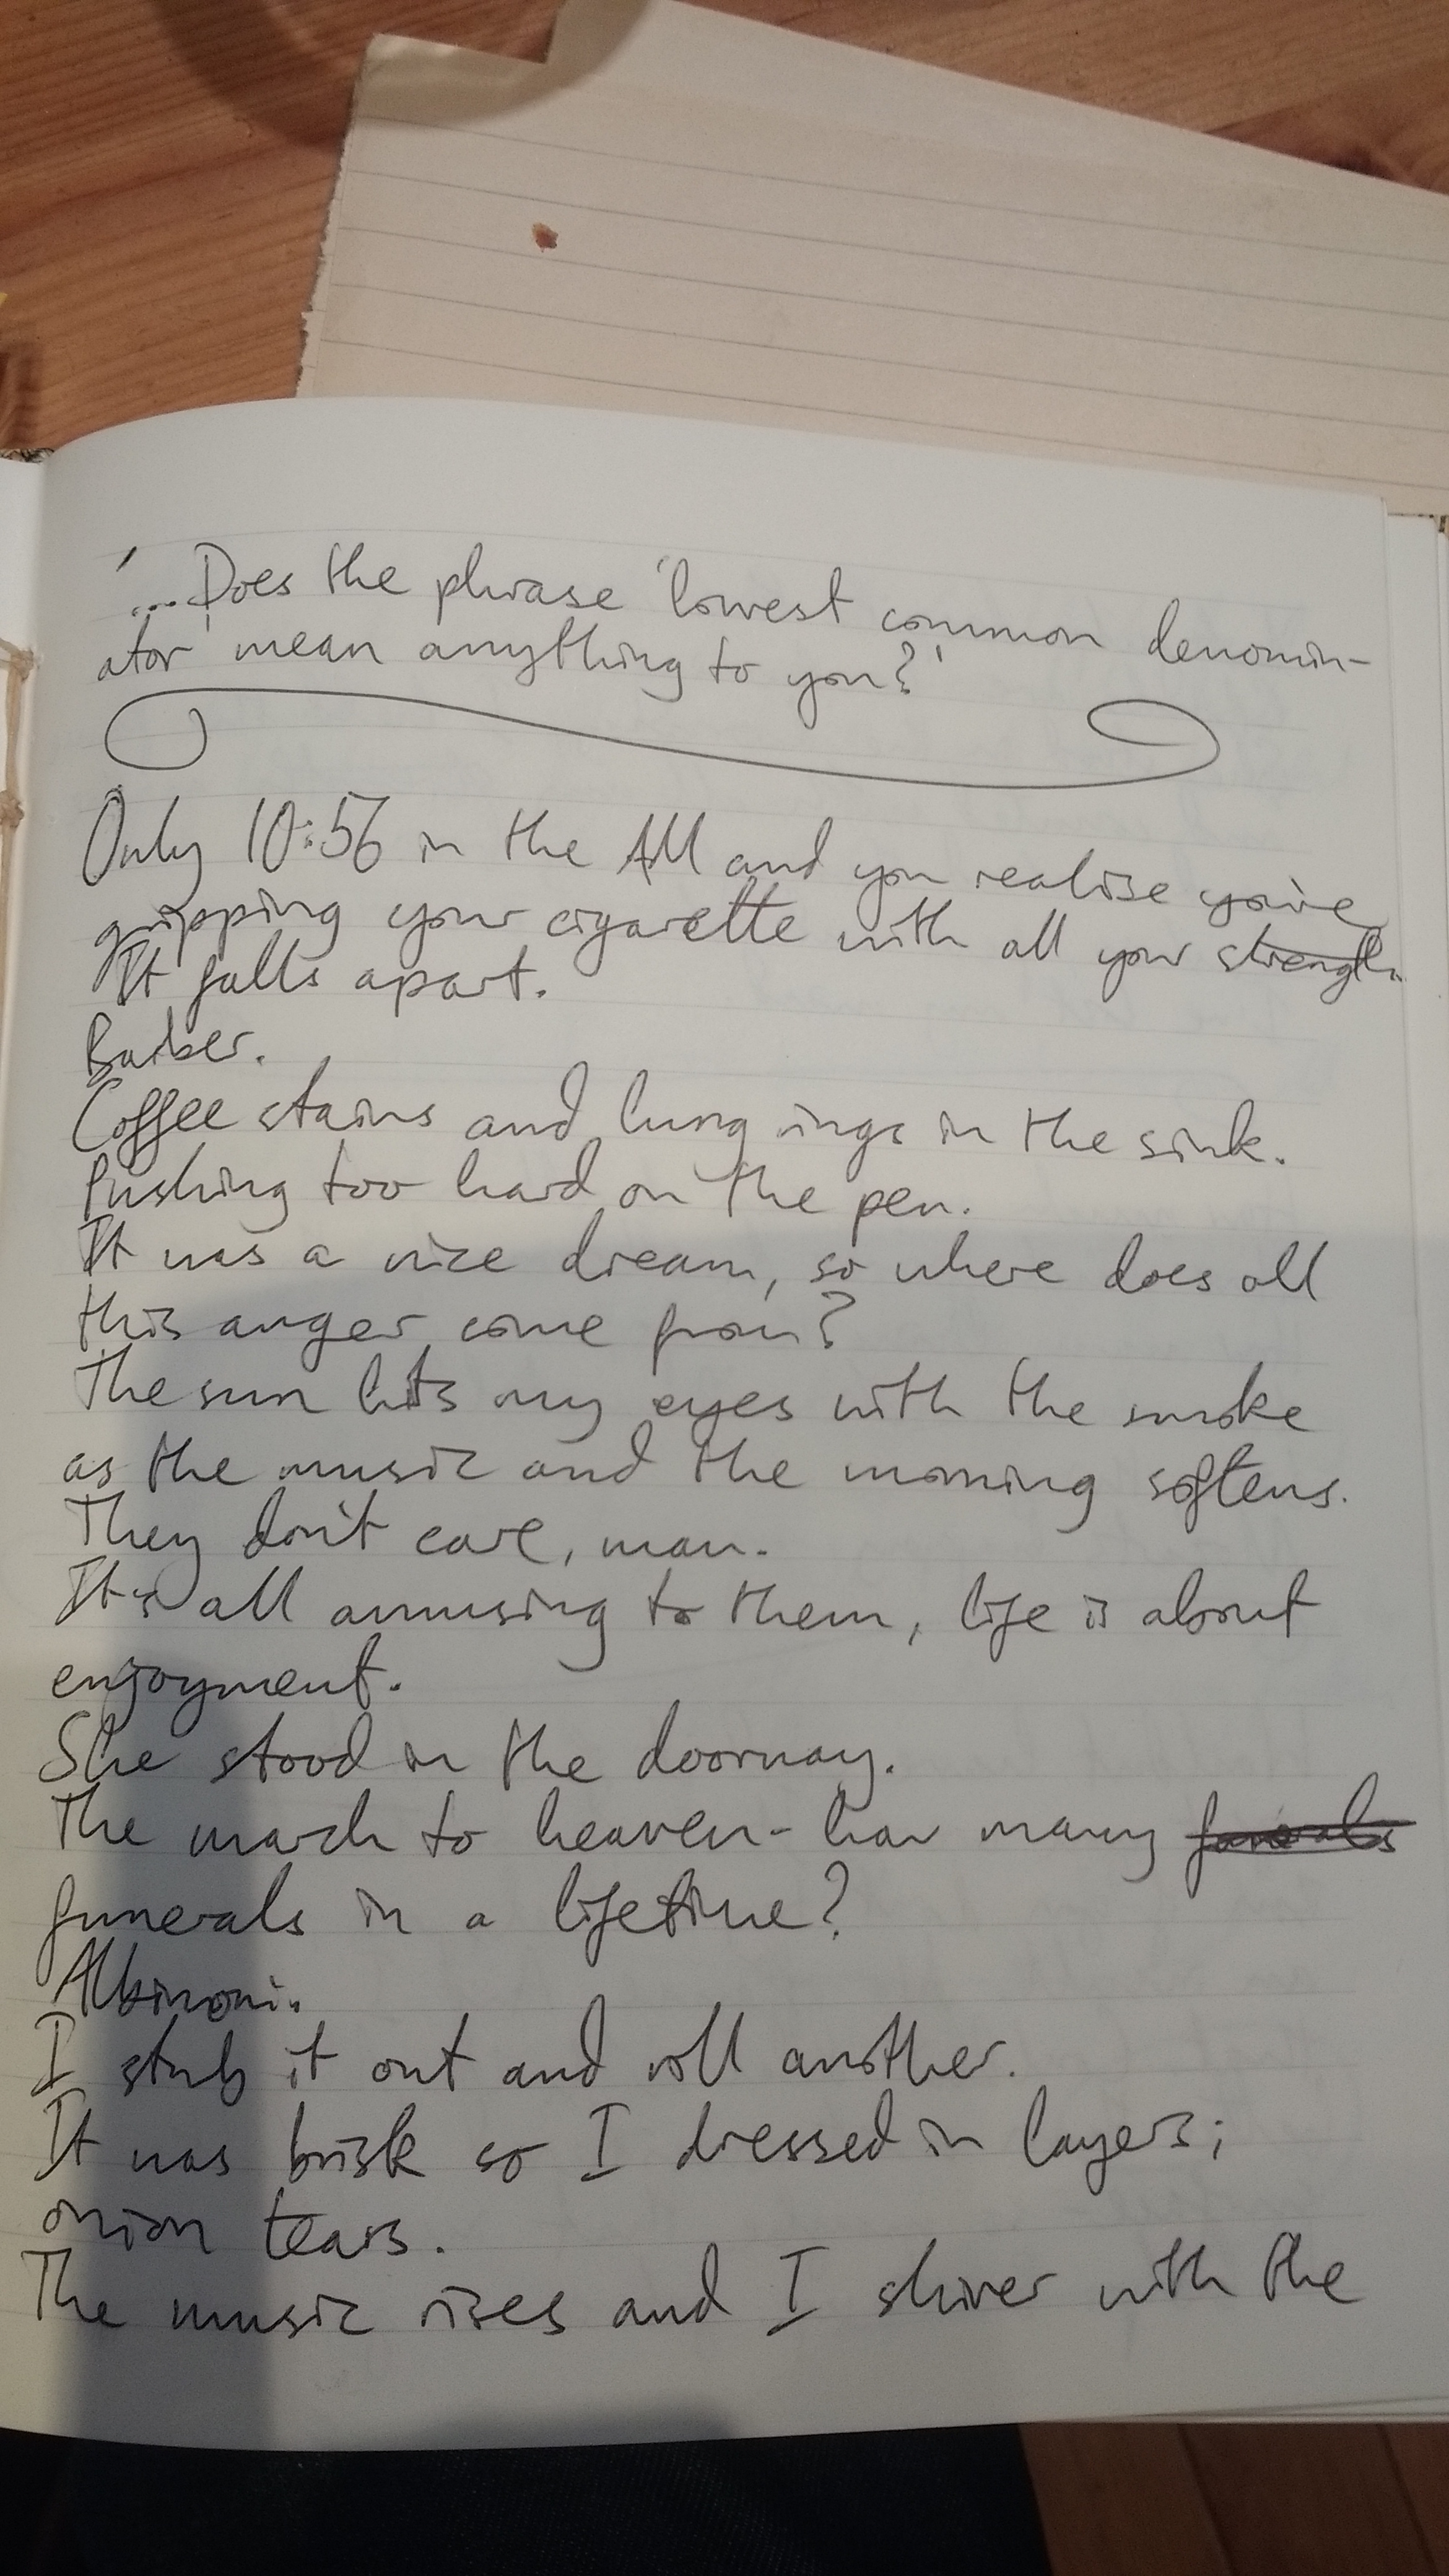 '...Does the phrase 'lowest common denomin-
ator' mean anything to you?'
Only 10:56 in the AM and you realise you're
gripping your cigarette with all your strength.
It falls apart.
Barber.
Coffee stains and lung rings in the sink.
Pushing too hard on the pen.
It was a nice dream, so where does all
this anger come from?
The sun hits my eyes with the smoke
as the music and the morning softens.
They don't care, man.
It's all amusing to them, life is about
enjoyment.
She stood in the doorway.
The march to heaven - how many funerals
funerals in a lifetime?
Albinoni.
I stub it out and roll another.
It was brisk so I dressed in layers;
onion tears.
The music rises and I shiver with the